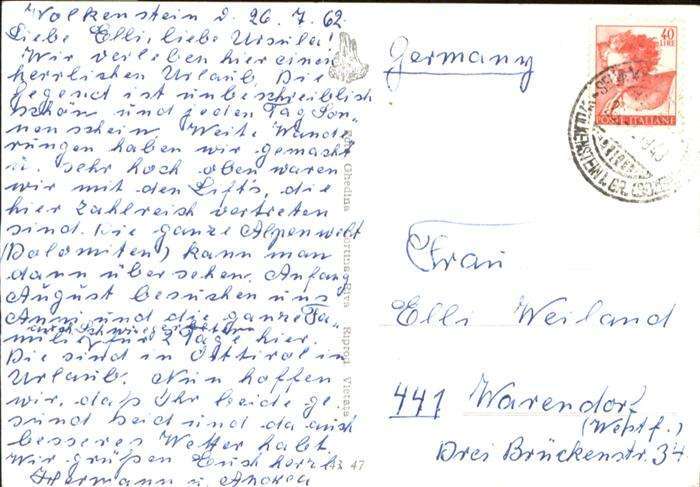 Wolkenstein d. 26. 7. 62.
Liebe Elli, liebe Ursula!
Wir verleben hier einen
herrlichen Urlaub. Die
gegend ist unbeschreiblich
schön und jeden Tag Son-
nenschein. Weite Wande-
rungen haben wir gemacht
u. sehr hoch oben waren
wir mit den Lift's, die
hier zahlreich vertreten
sind. Die ganze Alpenwelt
(Dolomiten) kann man
dann übersehen. Anfang
August besuchen uns
Anni und die ganze Fa-
auch Schwiegereltern
milie für 2 Tage hier.
Die sind in Osttirol in
Urlaub. Nun hoffen
wir, daß Ihr beide ge
sund seid und da auch
besseres Wetter habt.
Wir grüßen Euch herzl.
Hermann u.
Foto Ghedina Cortina Riva Riprod. Vietata
43 47
Germany
40
LIRE
POSTE ITALIANE
Frau
Elli Weiland
441 Warendorf
(Westf.)
Drei Brückenstr. 34